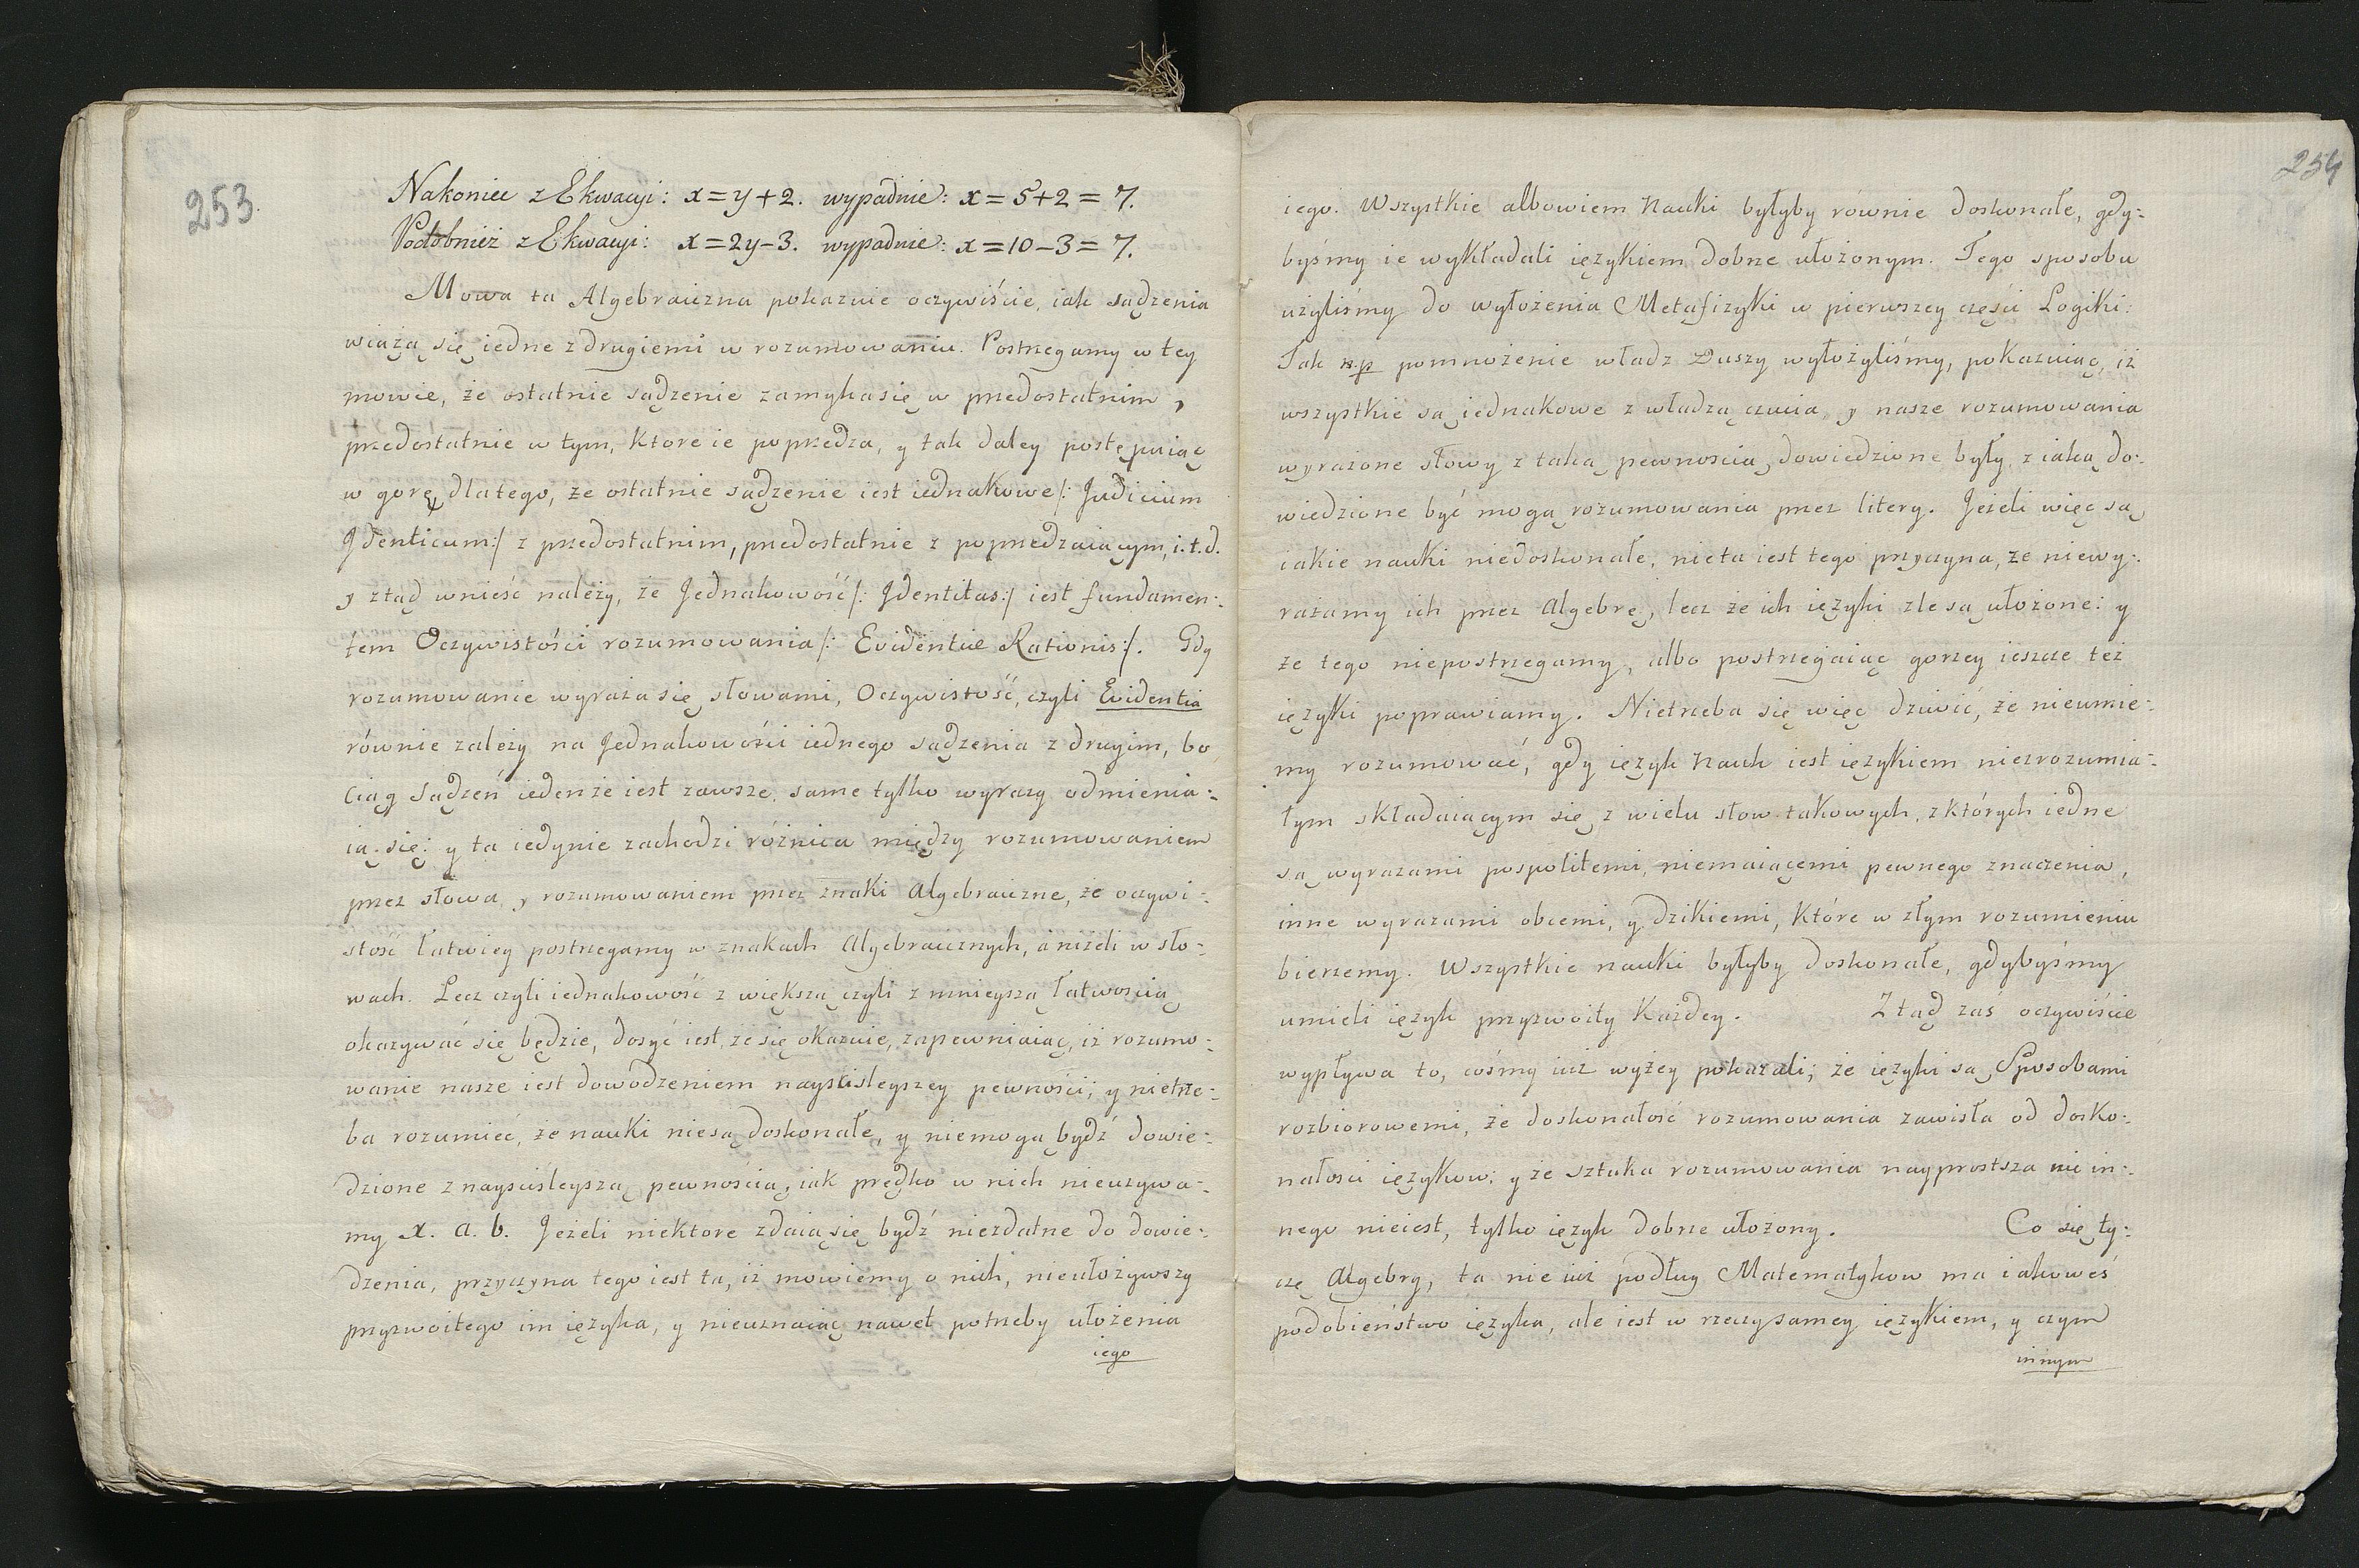 253.
Nakoniec z Ekwacyi: x=y+2. wypadnie: x=5+2=7.
Podobnież z Ekwacyi: x=2y-3. wypadnie: x=10-3=7.
Mowa ta Algebraiczna pokazuie oczywiście, iak sądzenia
wiążą się iedne z drugiemi w rozumowaniu. Postrzegamy w tey
mowie, że ostatnie sądzenie zamyka się w przedostatnim,
przedostatnie w tym, ktore ie poprzedza, y tak daley postępuiąc
w gorę, dlatego, że ostatnie sądzenie iest iednakowe /: Judicium
Jdenticum:/ z przedostatnim, przedostatnie z poprzedzaiącym, i.t.d.
y ztąd wnieść należy, że Jednakowość /: Jdentitas:/ iest fundamen-:
tem Oczywistości rozumowania /: Evidentiæ Rationis:/. Gdy
rozumowanie wyraża się słowami, Oczywistość, czyli Evidentia
równie zależy na Jednakowości iednego sądzenia z drugim, bo
ciąg sądzeń iedenże iest zawsze, same tylko wyrazy odmienia-:
ią się: y ta iedynie zachodzi różnica między rozumowaniem
przez słowa, y rozumowaniem przez znaki Algebraiczne, że oczywi-:
stość łatwiey postrzegamy w znakach Algebraicznych, aniżeli w sło-:
wach. Lecz czyli iednakowość z większą czyli z mnieyszą łatwością
okazywać się będzie, dosyć iest, że się okazuie, zapewniaiąc, iż rozumo-:
wanie nasze iest dowodzeniem nayściśleyszey pewności; y nietrze-:
ba rozumieć, że nauki niesą doskonałe, y niemogą bydź dowie-:
dzione z nayściśleyszą pewnością, iak prędko w nich nieuzywa-:
my x. a. b. Jeżeli niektore zdaią się bydź niezdatne do dowie-:
dzenia, przyczyna tego iest ta, iż mowiemy o nich, nieułożywszy
przyzwoitego im ięzyka, y nieuznaiąc nawet potrzeby ułożenia
iego
254
iego. Wszystkie albowiem Nauki byłyby równie doskonałe, gdy-:
byśmy ie wykładali ięzykiem dobrze ułożonym. Tego sposobu
użyliśmy do wyłożenia Metafizyki w pierwszey częsci Logiki:
Tak n.p pomnożenie władz Duszy wyłożyliśmy, pokazuiąc, iż
wszystkie są iednakowe z władzą czucia, y nasze rozumowania
wyrażone słowy z taką pewnoscią dowiedzione były, z iaką do-:
wiedzione być mogą rozumowania przez litery. Jeżeli więc są
iakie nauki niedoskonałe, nieta iest tego przyczyna, że niewy-:
rażamy ich przez Algebrę, lecz że ich ięzyki zle są ułożone: y
że tego niepostrzegamy, albo postrzegaiąc gorzey ieszcze też
ięzyki poprawiamy. Nietrzeba się więc dziwić, że nieumie-:
my rozumować, gdy ięzyk Nauk iest ięzykiem niezrozumia-:
łym składaiącym się z wielu słow takowych, z których iedne
są wyrazami pospolitemi, niemaiącemi pewnego znaczenia,
inne wyrazami obcemi, y dzikiemi, które w złym rozumieniu
bierzemy. Wszystkie nauki byłyby doskonałe, gdybyśmy
umieli ięzyk przyzwoity każdey. Ztąd zaś oczywiście
wypływa to, cośmy iuż wyżey pokazali; że ięzyki są Sposobami
rozbiorowemi, że doskonałość rozumowania zawisła od dosko-:
nałosci ięzykow: y że sztuka rozumowania nayprostsza nic in-:
nego nieiest, tylko ięzyk dobrze ułożony. Co się ty-:
czę Algebry, ta nie iuż podług Matematykow ma iakoweś
podobieństwo ięzyka, ale iest w rzeczy samey ięzykiem, y czym
innym